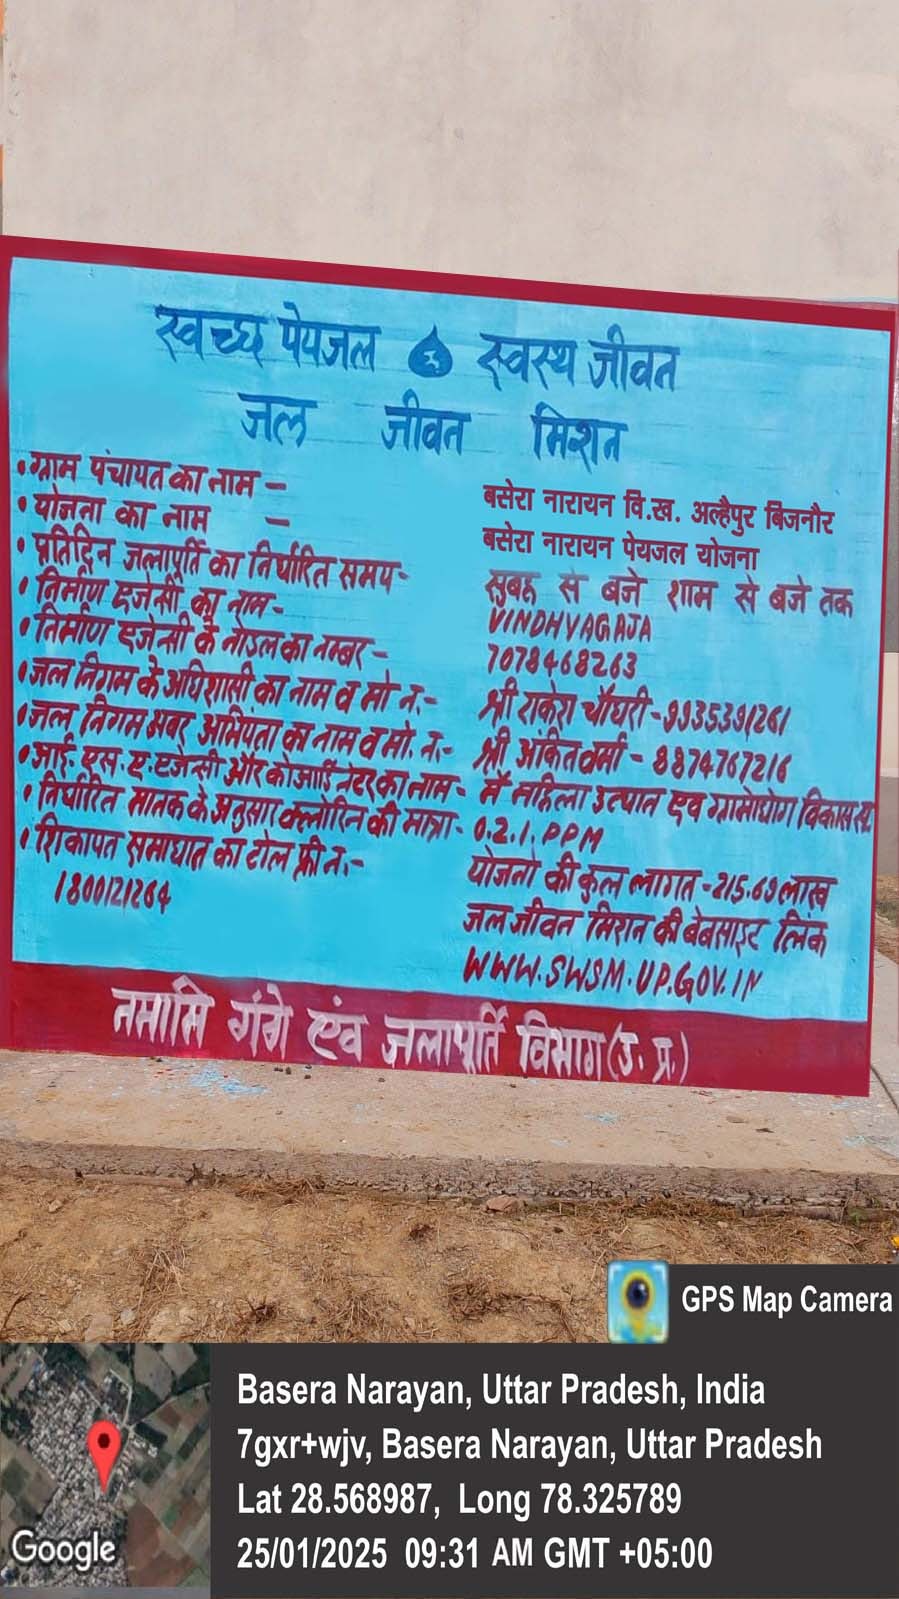 स्वच्छ पेयजल स्वस्थ जीवन
जल जीवन मिशन
• ग्राम पंचायत का नाम – बसेरा नारायन वि.ख. अल्हैपुर बिजनौर
• योजना का नाम – बसेरा नारायन पेयजल योजना
• प्रतिदिन जलापूर्ति का निर्धारित समय- सुबह से बजे शाम से बजे तक
• निर्माण एजेन्सी का नाम- VINDHYAGAJA
• निर्माण एजेन्सी के नोडल का नम्बर- 7078468263
• जल निगम के अधिशासी का नाम व मो न.- श्री राकेश चौधरी-9935391261
• जल निगम अवर अभियंता का नाम व मो. न.- श्री अंकित वर्मा - 8874767216
• आई. एस. ए. एजेन्सी और कोआर्डिनेटर का नाम- मै महिला उत्थान एवं ग्रामोद्योग विकास स.
• निर्धारित मानक के अनुसार क्लोरिन की मात्रा- 0.2.1. PPM
• शिकायत समाधान का टोल फ्री न.- योजना की कुल लागत-215.69 लाख
1800121264 जल जीवन मिशन की बेबसाइट लिंक
WWW.SWSM.UP.GOV.IN
नमामि गंगे एंव जलापूर्ति विभाग (उ. प्र.)
GPS Map Camera
Basera Narayan, Uttar Pradesh, India
7gxr+wjv, Basera Narayan, Uttar Pradesh
Lat 28.568987, Long 78.325789
25/01/2025 09:31 AM GMT +05:00
Google